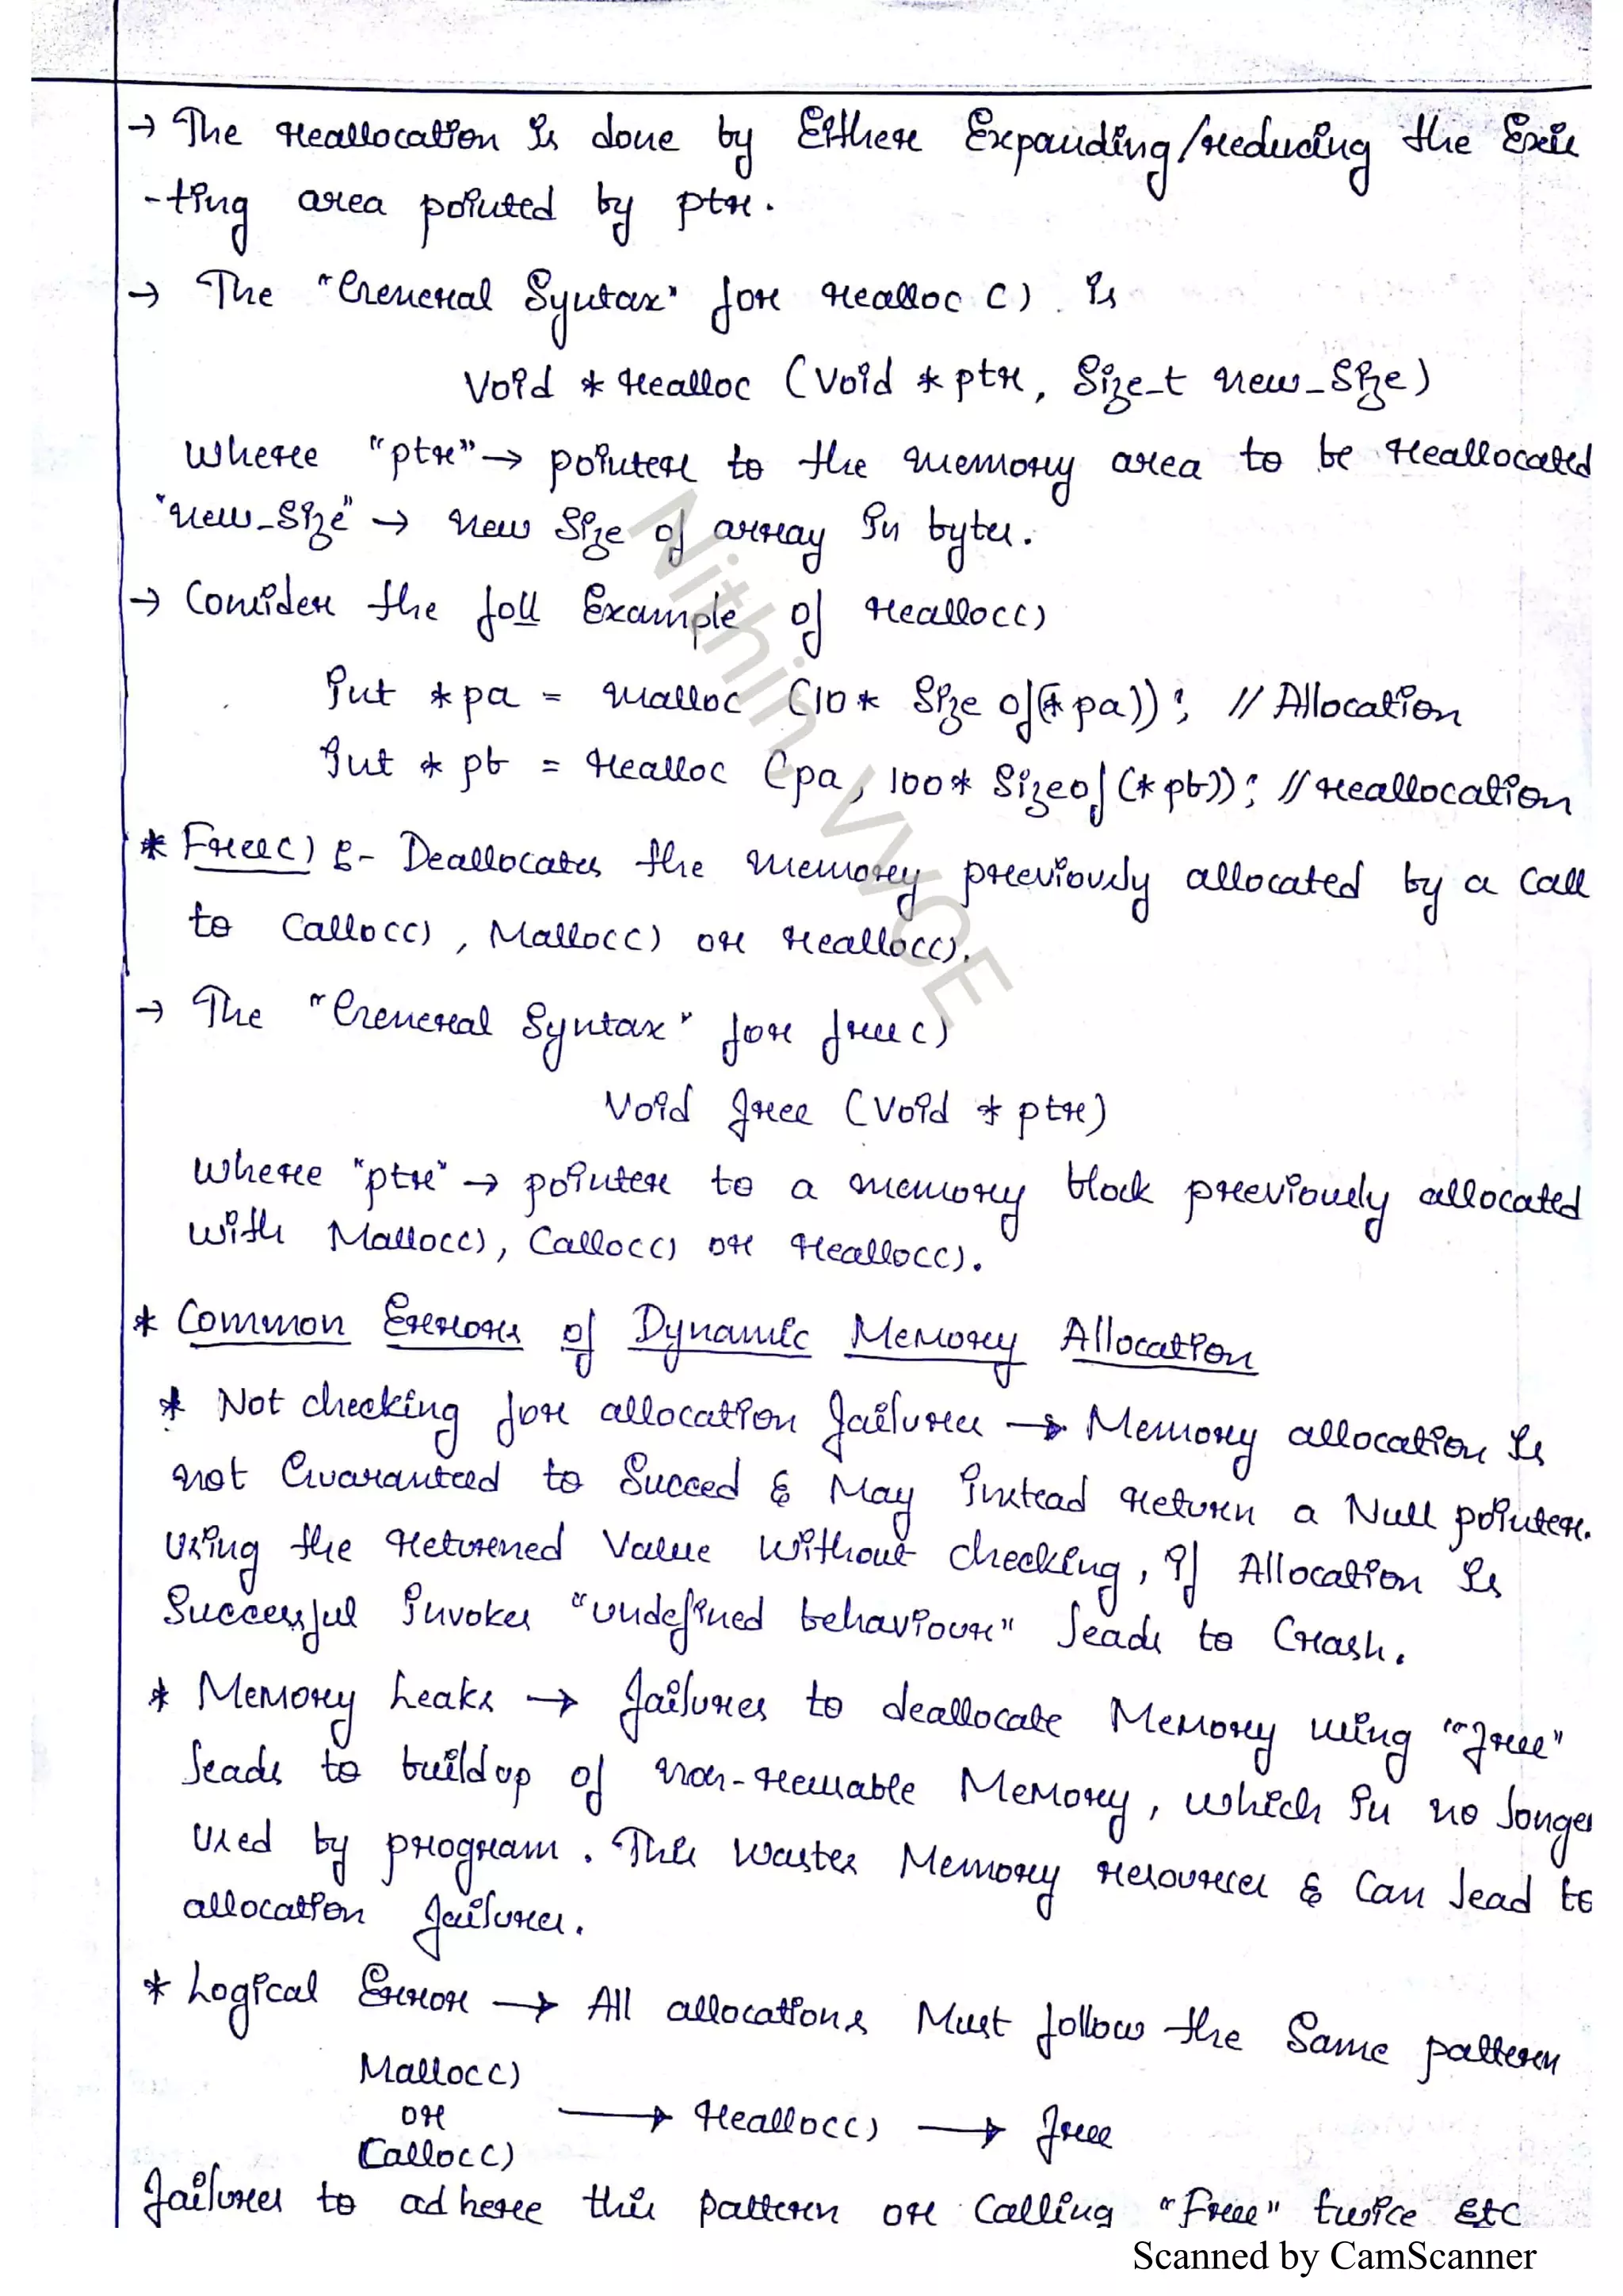 → The reallocation is done by Either Expanding/reducing the Exis
-ting area pointed by ptr.
→ The "General Syntax" for realloc() is
Void * realloc (void * ptr, Size_t new_Size)
where "ptr" → pointer to the memory area to be reallocated
"new_Size" → new Size of array in bytes.
→ Consider the foll Example of realloc()
int *pa = malloc (10 * Size of(* pa)); // Allocation
int * pb = realloc (pa, 100 * Sizeof (* pb)); // reallocation
* Free() :- Deallocates the memory previously allocated by a call
to Calloc(), Malloc() or realloc().
→ The "General Syntax" for free()
Void free (Void * ptr)
where "ptr" → pointer to a memory block previously allocated
with Malloc(), Calloc() or realloc().
* Common Errors of Dynamic Memory Allocation
* Not checking for allocation failures → Memory allocation is
not Guaranteed to Succed & May instead return a Null pointer.
using the returned Value without checking, if Allocation is
Successful invokes "undefined behaviour" leads to Crash.
* Memory Leaks → failures to deallocate Memory using "free"
leads to buildup of non-reusable Memory, which in no longer
used by program. This wastes Memory resources & Can lead to
allocation failures.
* Logical Error → All allocations Must follow the Same pattern
Malloc()
or → realloc() → free
Calloc()
failures to adhere this pattern or Calling "Free" twice etc
Nithin, VVCE
Scanned by CamScanner